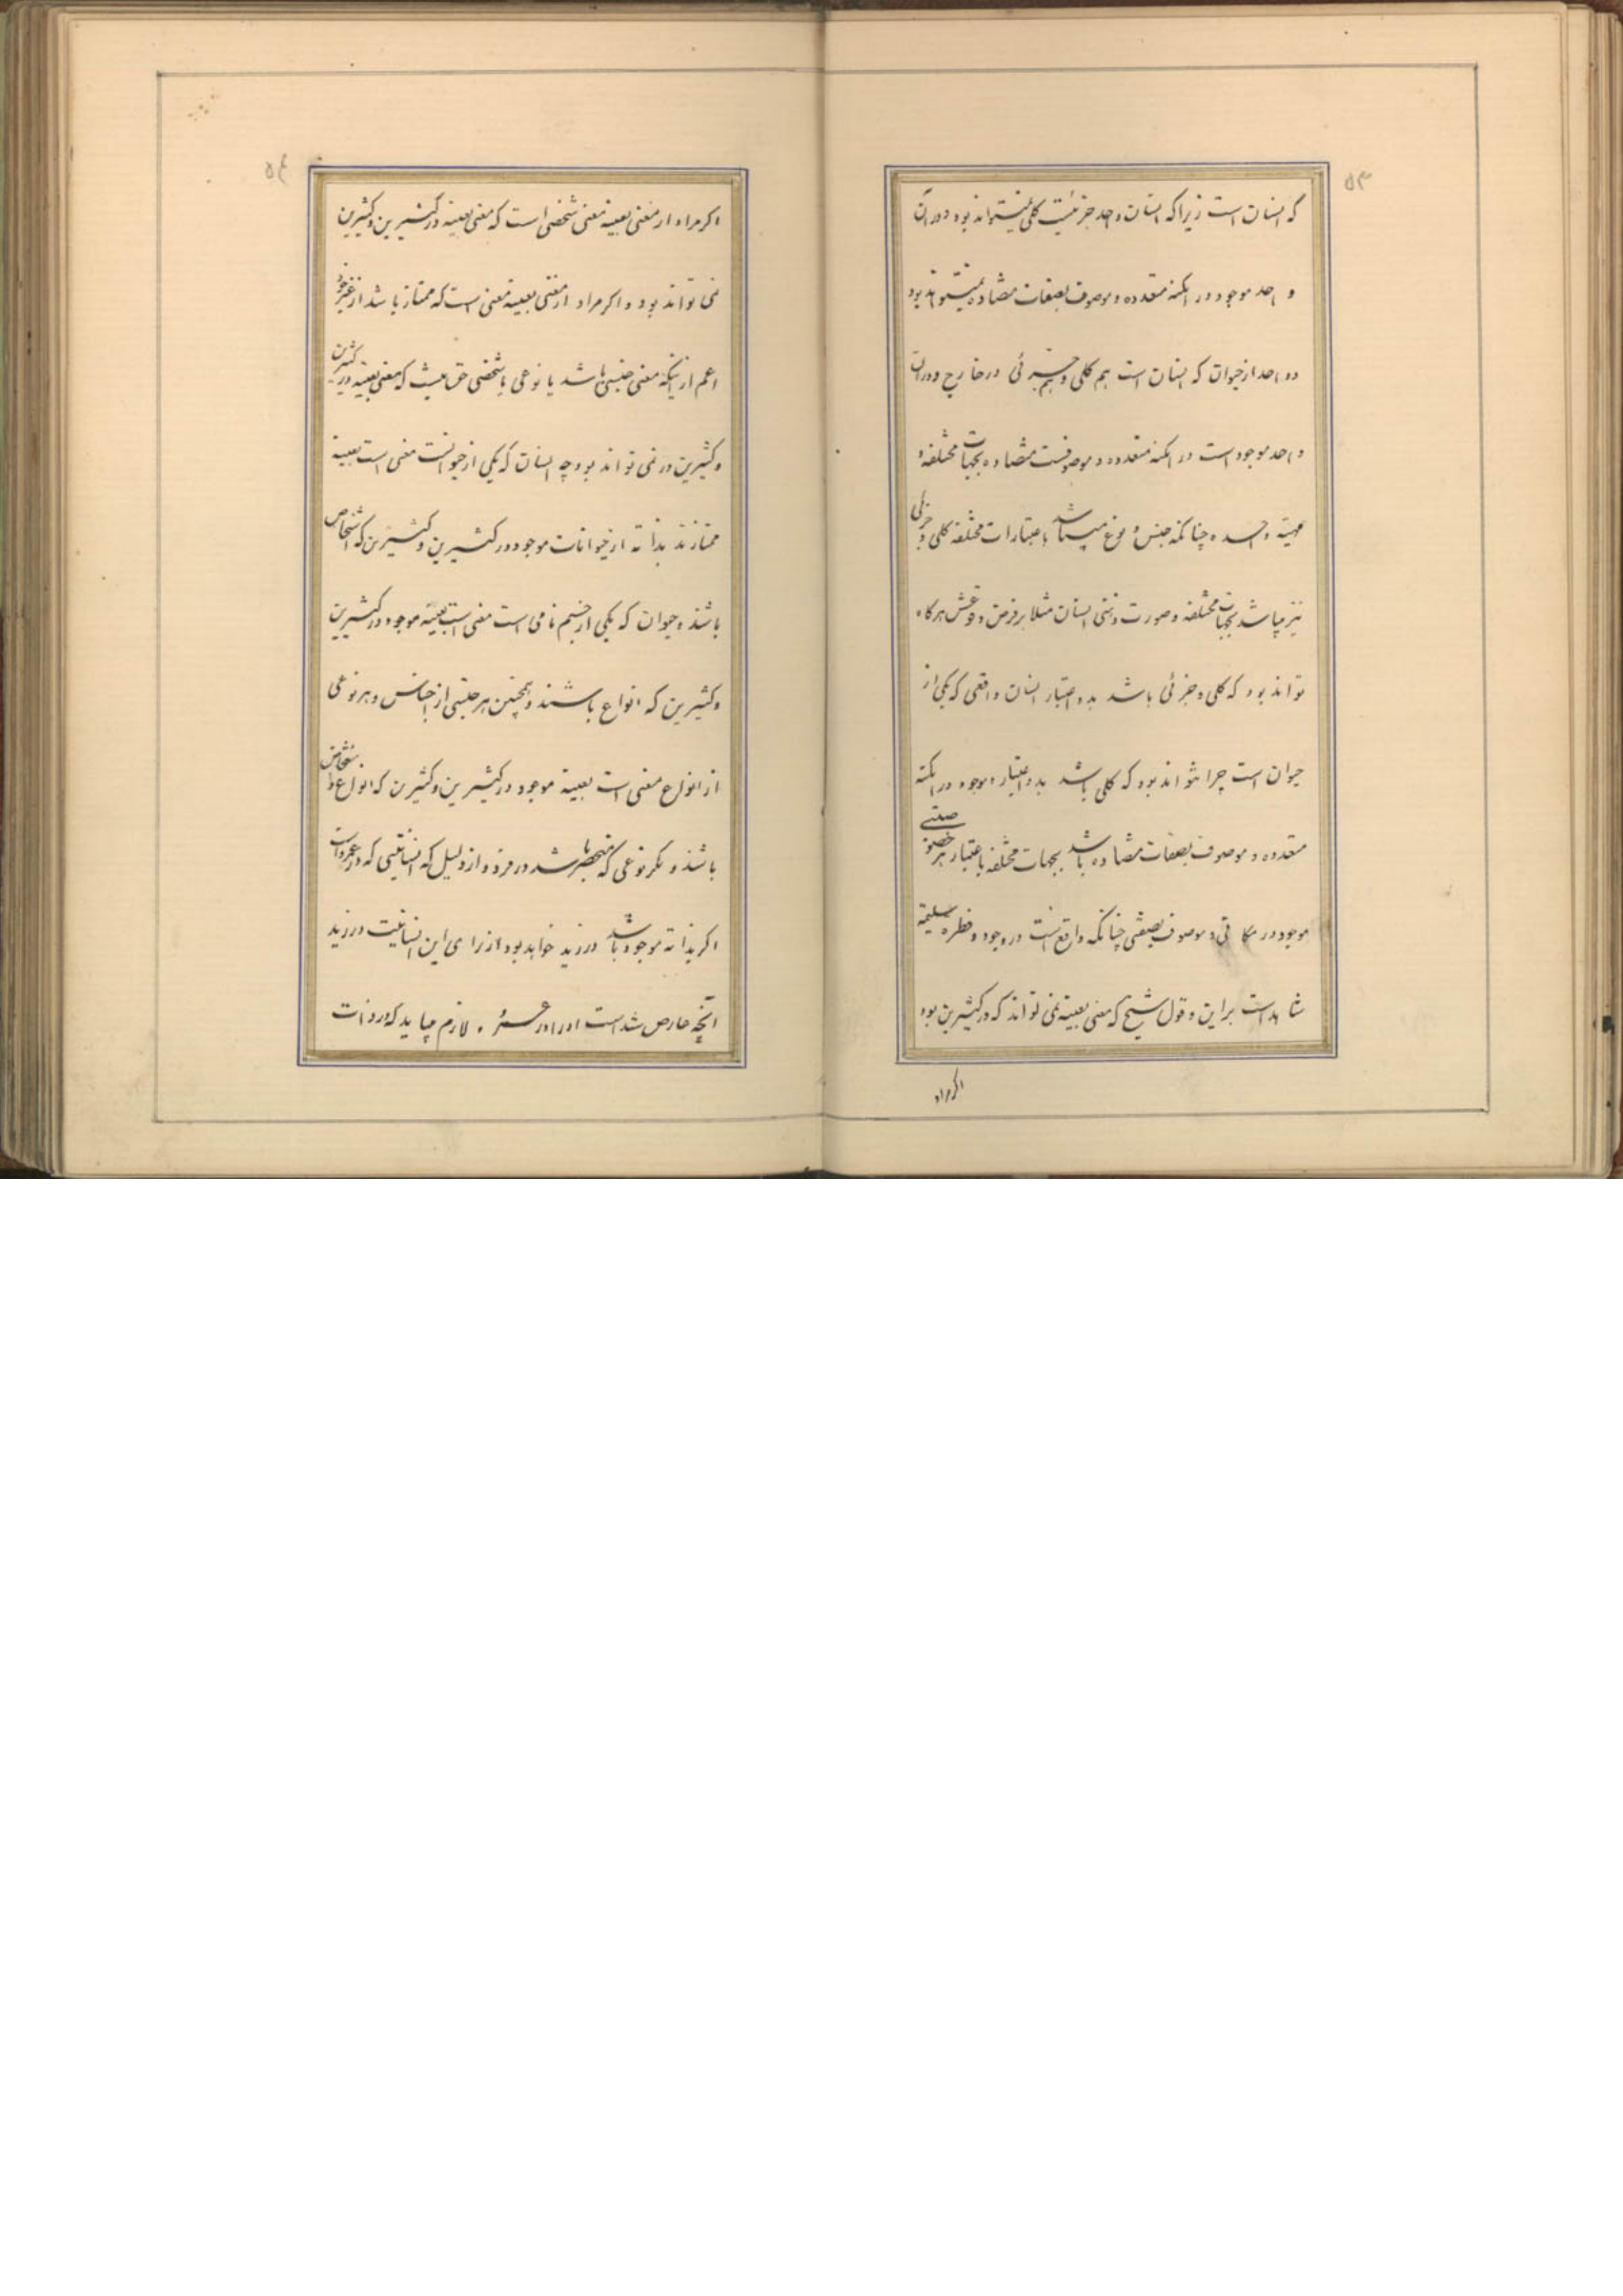 ۵۳
که انسان است زیرا که انسان واحد جزئیست کلی نیستواند بود و در آن
واحد موجود در امکنه متعدده و موصوف بصفات متضاده نمیتواند بود
و واحد از حیوان که انسان است هم کلی و هم جزئی در خارج و در آن
واحد موجود است در امکنه متعدده و موصوفست متضاده بجهات مختلفه و
مهیة واحده چنانکه جنس و نوع میباشد باعتبارات مختلفه کلی و جزئی
نیز میباشد بجهات مختلفه و صورت ذهنی انسان مثلا بر فرض و هرگاه
تواند بود که کلی و جزئی باشد بدو اعتبار انسان واقعی که یکی از
حیوان است چرا نتواند بود که کلی باشد بدو اعتبار و موجود در امکنه
متعدده و موصوف بصفات متضاده باشد بجهات مختلفه باعتبار هر حصه
موجود در مکانی و موصوف بصفتی چنانکه واقع است در وجود و فطره سلیمه
شاهد است براین و قول شیخ که معنی بعینه نمی تواند که در کثیرین بود
اکرمراد
۵۴
اکر مراد از معنی بعینه معنی شخصی است که معنی بعینه در کثیرین و کثیرین
نمی تواند بود و اکر مراد از معنی بعینه معنی است که ممتاز باشد از غیر خود
اعم از اینکه معنی جنسی باشد یا نوعی یا شخصی حق نیست که معنی بعینه در کثیرین
و کثیرین در نمی تواند بود چه انسان که یکی از حیوانست معنی است بعینه
ممتاز بذاته از حیوانات موجود در کثیرین و کثیرین که اشخاص
باشند و حیوان که یکی از جسم نامی است معنی است بعینه موجود در کثیرین
و کثیرین که انواع باشند و همچنین هر جنسی از اجناس و هر نوعی
از انواع معنی است بعینه موجود در کثیرین و کثیرین که انواع و اشخاص
باشند و مکر نوعی که منحصر باشد در فرد و از دلیل که انسانیتی که در عمرو است
اکر بذاته موجود باشد در زید خواهد بود از برای این انسانیت در زید
آنچه عارض شده است او را در عمرو و لازم میاید که در ذات